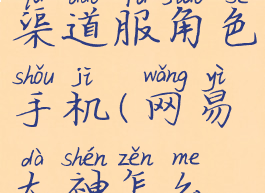 渠道服角色
shǒu jī wǎng yì
手机(网易
dà shén zěn me
大神怎么